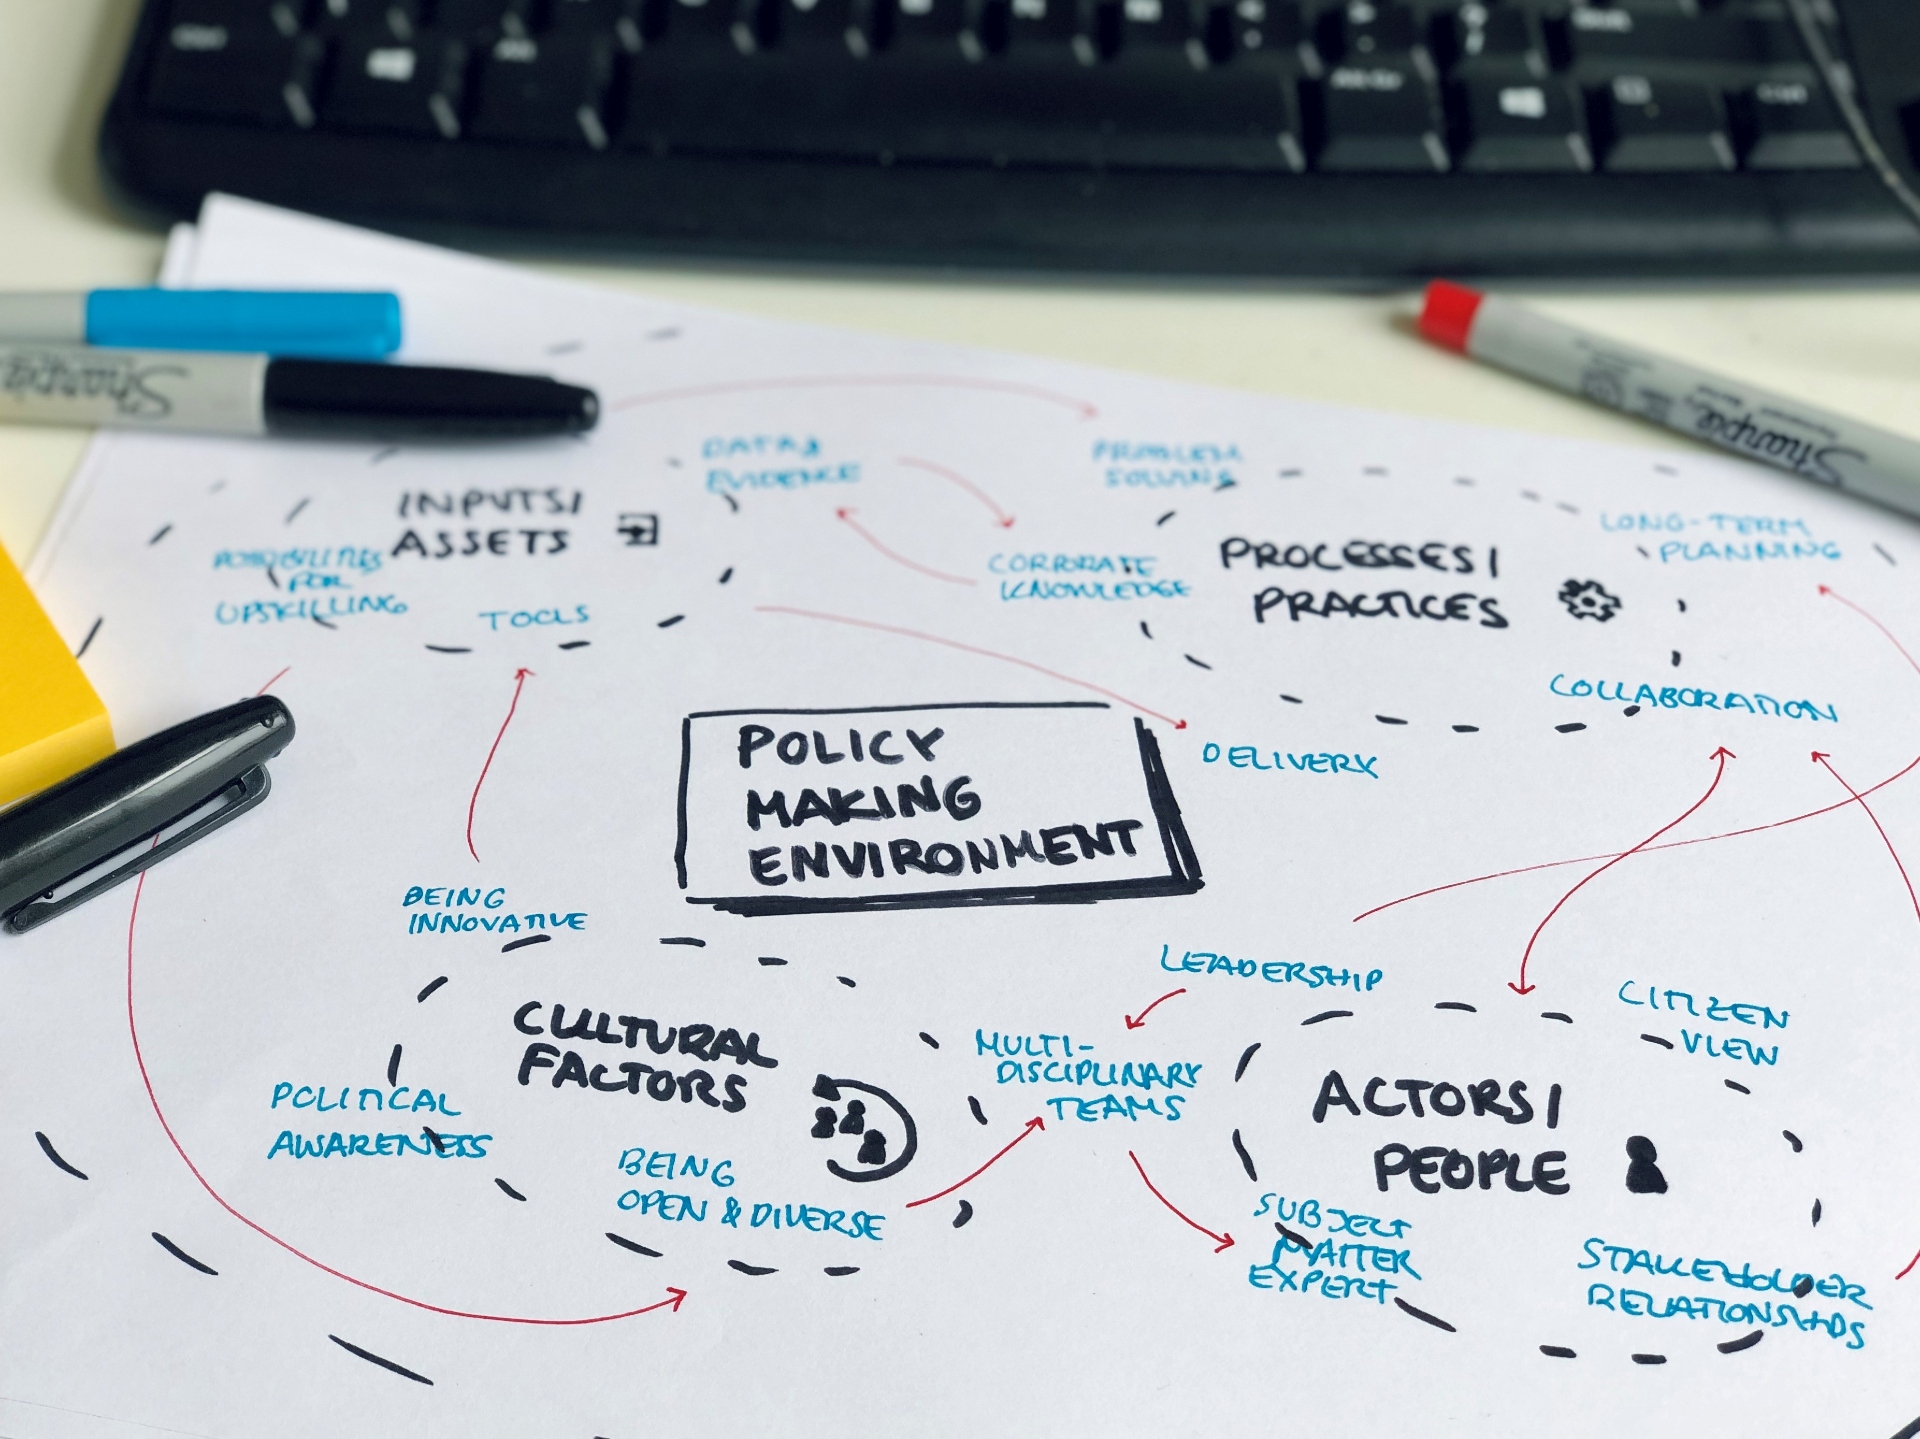 Ctrl
Alt
Alt Gr
Ctrl
Sharpie
Sharpie
DATA &
EVIDENCE
PROBLEM
SOLVING
INPUTS/
ASSETS
POSSIBILITIES
FOR
UPSKILLING
TOOLS
CORPORATE
KNOWLEDGE
PROCESSES/
PRACTICES
LONG-TERM
PLANNING
COLLABORATION
DELIVERY
POLICY
MAKING
ENVIRONMENT
BEING
INNOVATIVE
CULTURAL
FACTORS
POLITICAL
AWARENESS
BEING
OPEN & DIVERSE
LEADERSHIP
MULTI-
DISCIPLINARY
TEAMS
CITIZEN
VIEW
ACTORS/
PEOPLE
SUBJECT
MATTER
EXPERT
STAKEHOLDER
RELATIONSHIPS